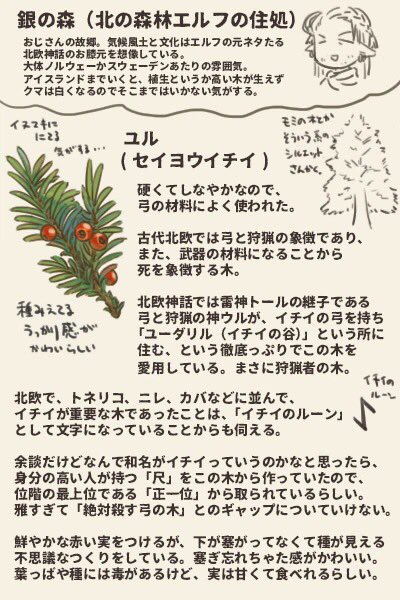 銀の森（北の森林エルフの住処）
おじさんの故郷。気候風土と文化はエルフの元ネタたる
北欧神話のお膝元を想像している。
大体ノルウェーかスウェーデンあたりの雰囲気。
アイスランドまでいくと、植生というか高い木が生えず
クマは白くなるのでそこまではいかない気がする。
イヌマキに
にてる
気がする…
ユル
（セイヨウイチイ）
モミの木とか
そういう系の
シルエット
さんかく。
硬くてしなやかなので、
弓の材料によく使われた。
古代北欧では弓と狩猟の象徴であり、
また、武器の材料になることから
死を象徴する木。
種みえてる
うっかり感が
かわいらしい
北欧神話では雷神トールの継子である
弓と狩猟の神ウルが、イチイの弓を持ち
「ユーダリル（イチイの谷）」という所に
住む、という徹底っぷりでこの木を
愛用している。まさに狩猟者の木。
イチイの
ルーン
北欧で、トネリコ、ニレ、カバなどに並んで、
イチイが重要な木であったことは、「イチイのルーン」
として文字になっていることからも伺える。
余談だけどなんで和名がイチイっていうのかなと思ったら、
身分の高い人が持つ「尺」をこの木から作っていたので、
位階の最上位である「正一位」から取られているらしい。
雅すぎて「絶対殺す弓の木」とのギャップについていけない。
鮮やかな赤い実をつけるが、下が塞がってなくて種が見える
不思議なつくりをしている。塞ぎ忘れちゃた感がかわいい。
葉っぱや種には毒があるけど、実は甘くて食べれるらしい。